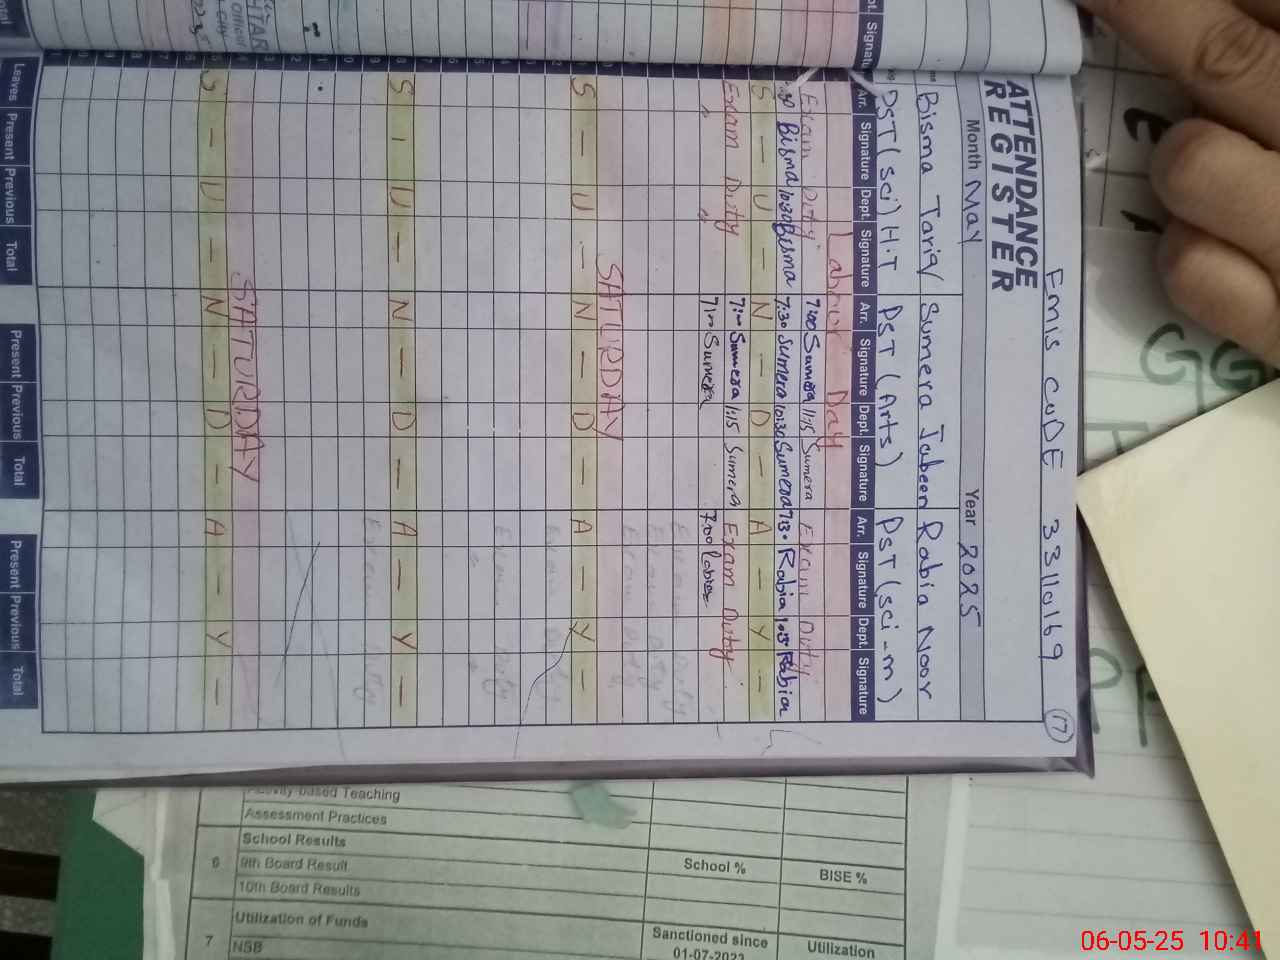 EMIS CODE 33110169
17
ATTENDANCE
REGISTER
Month May Year 2025
Bisma Tariq Sumera Jabeen Rabia Noor
PST (sci) H.T PST (Arts) PST (sci-m)
Arr. Signature Dept. Signature Arr. Signature Dept. Signature Arr. Signature Dept. Signature
Labour Day
Exam Duty 7:00 Sumera 11:15 Sumera Exam Duty
Bisma 10:30 Bisma 7:30 Sumera 10:30 Sumera Rabia Rabia
S - U - N - D - A - Y -
Exam Duty 7:00 Sumera 1:15 Sumera Exam Duty
" " 7:00 Sumera 7:00 Rabia
SATURDAY
S - U - N - D - A - Y -
S - U - N - D - A - Y -
SATURDAY
S - U - N - D - A - Y -
Leaves Present Previous Total Present Previous Total Present Previous Total
Activity-based Teaching
Assessment Practices
6 School Results School % BISE %
9th Board Result
10th Board Results
7 Utilization of Funds Sanctioned since 01-07-2023 Utilization
NSB
06-05-25 10:41